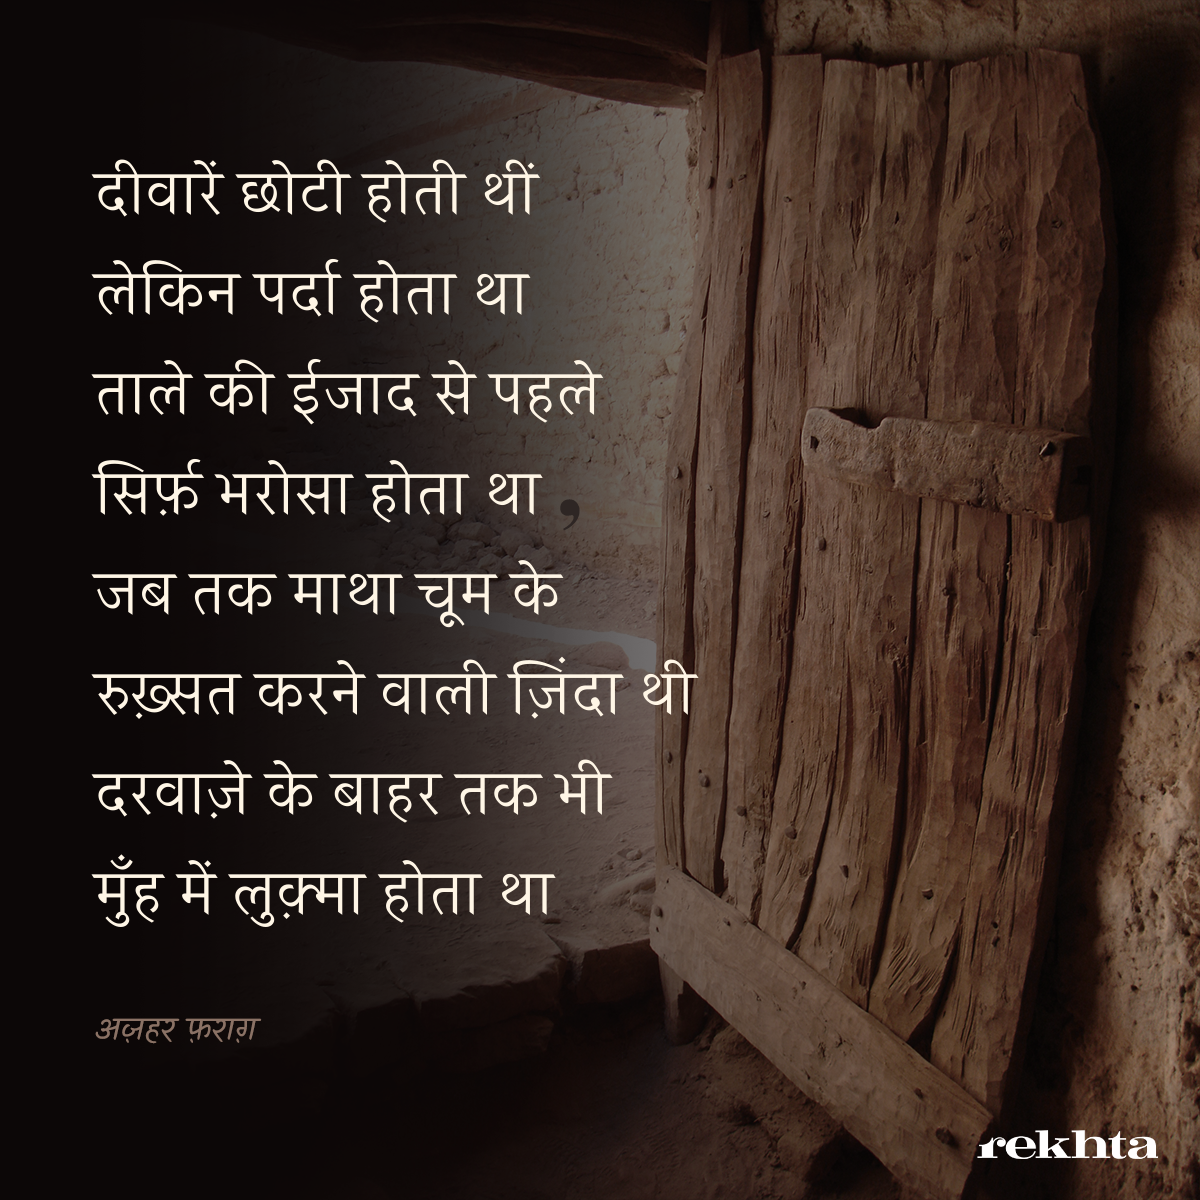 दीवारें छोटी होती थीं
लेकिन पर्दा होता था
ताले की ईजाद से पहले
सिर्फ़ भरोसा होता था ,
जब तक माथा चूम के
रुख़्सत करने वाली ज़िंदा थी
दरवाज़े के बाहर तक भी
मुँह में लुक़्मा होता था
अज़हर फ़राग़
rekhta